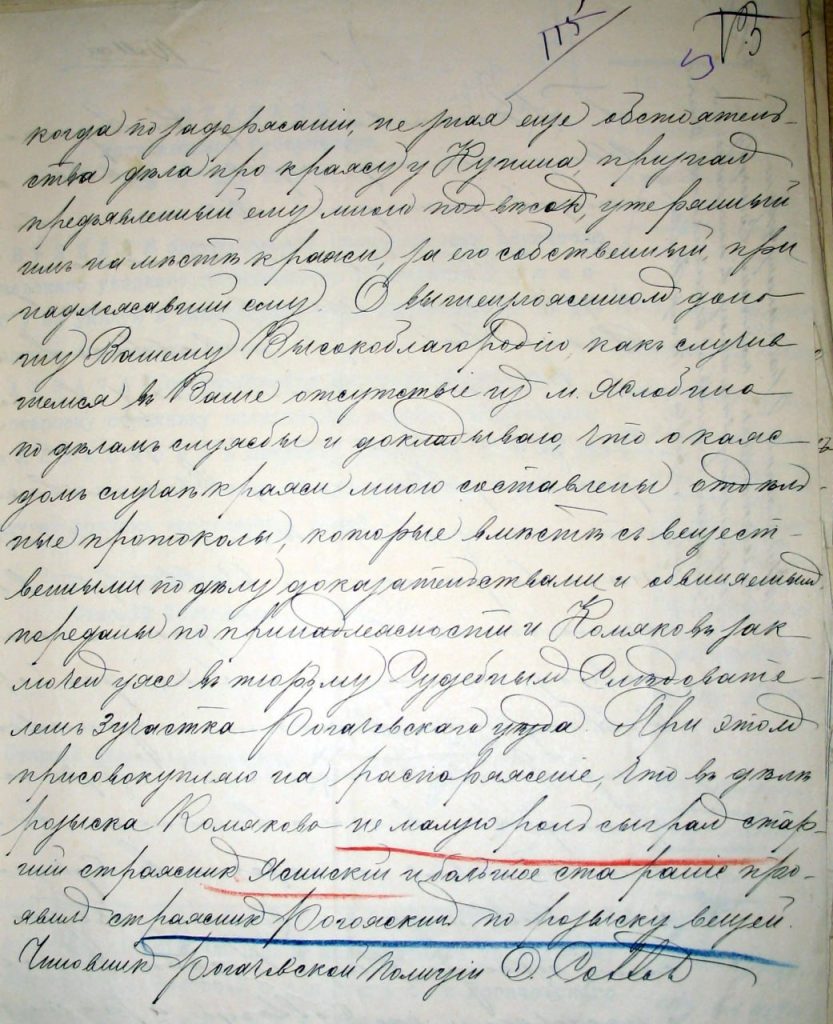 115
когда по задержаніи, не зная еще обстоятель-
ства дѣла про кражу у Купина, призналъ
предъявленный ему мною подвѣсокъ, утерянный
имъ на мѣстѣ кражи, за его собственный, при
надлежавшій ему. О вышеизложенномъ доно
шу Вашему Высокоблагородію, какъ случив
шемся въ Ваше отсутствіе из м.
по дѣламъ службы и докладываю, что о каж
домъ случаѣ кражи мною составлены отдѣль
ные протоколы, которые вмѣстѣ съ вещест-
венными по дѣлу доказательствами и обвиняемымъ
переданы по принадлежности и Комяковъ зак
люченъ уже въ тюрьму Судебнымъ Слѣдовате-
лемъ 3 участка Рогачевскаго уѣзда. При этомъ
присовокупляю на распоряженіе, что въ дѣлѣ
розыска Комякова не малую роль сыгралъ стар-
шій стражникъ Ясинскій и большое стараніе про-
явилъ стражникъ Рогожскій по розыску вещей.
Чиновникъ Рогачевской Полиціи